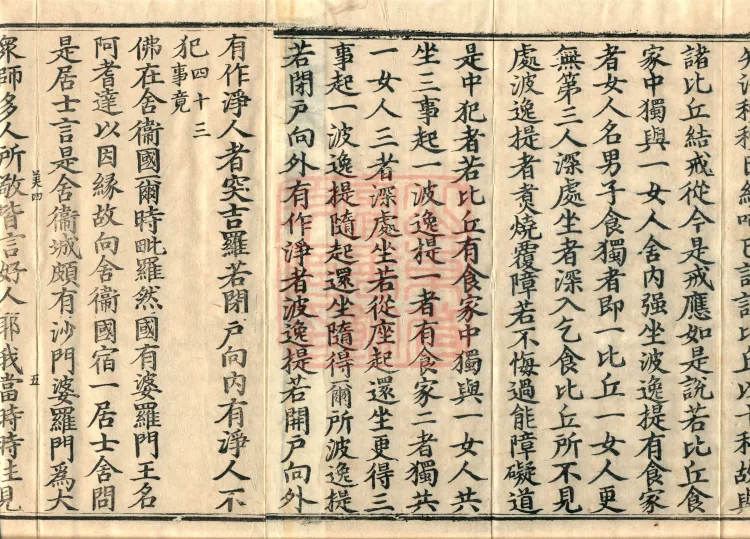 諸比丘結戒從今是戒應如是說若比丘食
家中獨與一女人舍內强坐波逸提有食家
者女人名男子食獨者即一比丘一女人更
無第三人深處坐者深入乞食比丘所不見
處波逸提者煮燒覆障若不悔過能障礙道
是中犯者若比丘有食家中獨與一女人共
坐三事起一波逸提一者有食家二者獨共
一女人三者深處坐若從座起還坐更得三
事起一波逸提隨起還坐隨得爾所波逸提
若閉戶向外有作淨者波逸提若開戶向外
有作淨人者突吉羅若閉戶向內有淨人不
犯四十三
事竟
佛在舍衞國爾時毗羅然國有婆羅門王名
阿耆達以因緣故向舍衞國宿一居士舍問
是居士言是舍衞城頗有沙門婆羅門爲大
美四 五
衆師多人所敬皆言好人耶我當時時往見